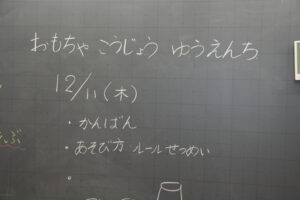 おもちゃ こうじょう ゆうえんち
12/11(木)
・かんばん
・あそび方 ルールせつめい
・